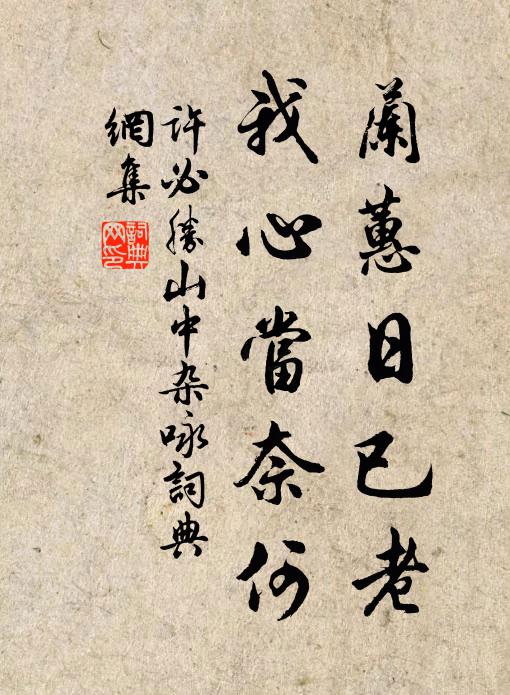 蘭蕙日已老
我心當奈何
許必勝山中杂咏詞典
網集
詞典
网印